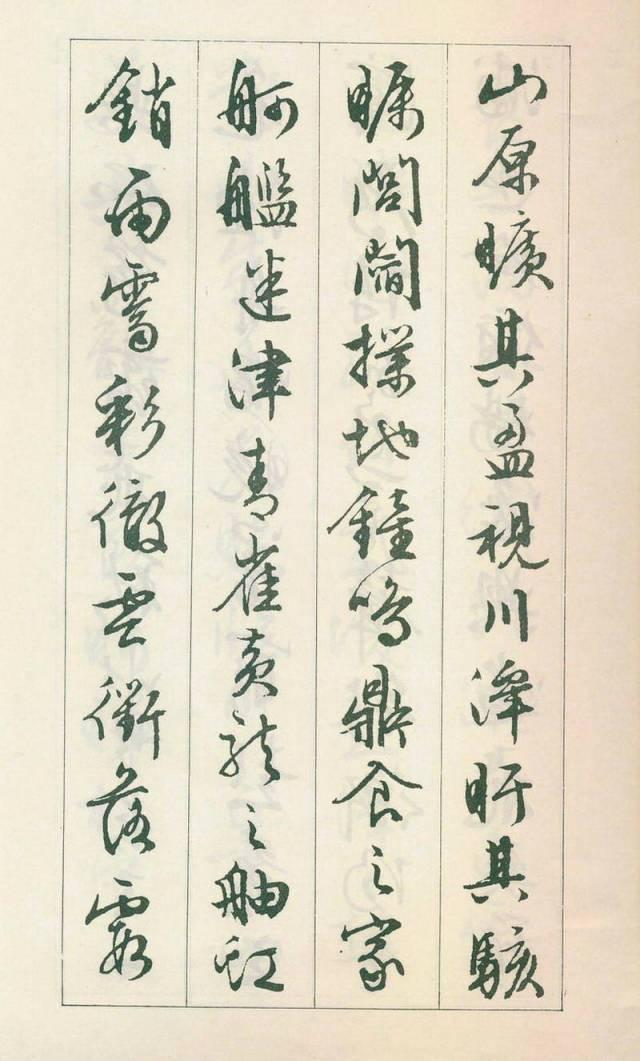 山原曠其盈視川澤盱其駭
矚閭閻撲地鐘鳴鼎食之家
舸艦迷津青雀黃龍之舳虹
銷雨霽彩徹雲衢落霞